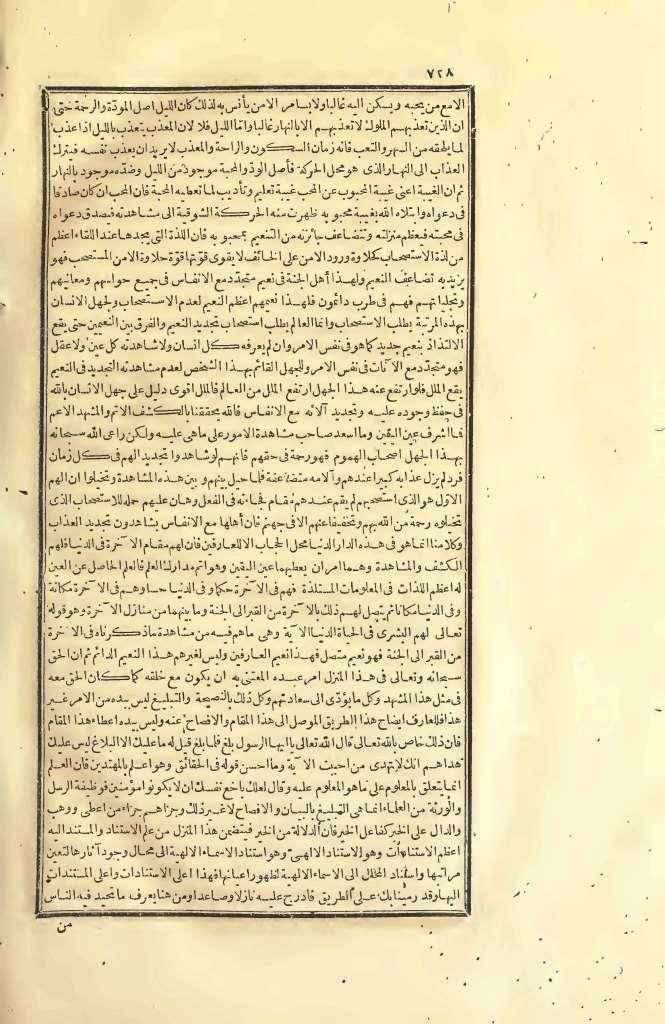 ٧٢٨
الامع من يحبه ويسكن اليه غالبا ولا يسامر الا من يأنس به لذلك كان الليل اصل المودّة والرحمة حتى
ان الذين تعذبهم الملوك لا تعذبهم الا بالنهار غالبا واتما الليل فلا لان المعذب يتعذب بالليل اذا عذب
لما يلحقه من السهر والتعب فانه زمان السكون والراحة والمعذب لا يريد ان يعذب نفسه فيترك
العذاب الى النهار الذى هو محل الحركة فأصل الودّ والمحبة موجود من الليل وضدّه موجود بالنهار
ثم ان الغيبة اعنى غيبة المحبوب عن المحب غيبة تعليم وتأديب لما تعطيه المحبة فان المحب ان كان صادقا
فى دعواه وابتلاه الله بغيبة محبوبه ظهرت منه الحركة الشوقية الى مشاهدته فصدق دعواه
فى محبته فيعظم منزلته وتتضاعف جائزته من التنعيم بمحبوبه فان اللذة التى يجدها عند اللقاء اعظم
من لذة الاستصحاب كحلاوة ورود الامن على الخائف لا يقوى قوّتها قوة حلاوة الامن المستصحب فهو
يزيد به تضاعف النعيم ولهذا أهل الجنة فى نعيم متجدّد مع الانفاس فى جميع حواسهم ومعانيهم
وتجلياتهم فهم فى طرب دائمون فلهذا نعيمهم اعظم النعيم لعدم الاستصحاب ولجهل الانسان
بهذه المرتبة يطلب الاستصحاب وانما العالم يطلب استصحاب تجديد النعيم والفرق بين النعيمين حتى يقع
الالتذاذ بنعيم جديد كما هو فى نفس الامر وان لم يعرفه كل انسان ولا شاهدته كل عين ولا عقل
فهو متجدّد مع الآنات فى نفس الامر وللجهل القائم بهذا الشخص لعدم مشاهدته التجديد فى النعيم
يقع الملل فلو ارتفع عنه هذا الجهل ارتفع الملل من العالم فالملل اقوى دليل على جهل الانسان بالله
فى حفظ وجوده عليه وتجديد آلائه مع الانفاس فالله يحققنا بالكشف الاتم والمشهد الاعم
فما اشرف عين اليقين وما اسعد صاحب مشاهدة الامور على ماهى عليه ولكن راعى الله سبحانه
بهذا الجهل اصحاب الهموم فهو رحمة فى حقهم فانهم لو شاهدوا تجديد الهم فى كل زمان
فرد لم يزل عذابه كبيرا عندهم وآلامه متضاعفة فلما حيل بينهم وبين هذه المشاهدة وتخيلوا ان الهم
الاوّل هو الذى استصحبهم لم يقم عندهم مقام فجاءته فى الفعل وهان عليهم حمله للاستصحاب الذى
تخيلوه رحمة من الله بهم وتخفيفا عنهم الا فى جهنم فان أهلها مع الانفاس يشاهدون تجديد العذاب
وكلامنا انما هو فى هذه الدار الدنيا محل الحجاب الا للعارفين فان لهم مقام الآخرة فى الدنيا فلهم
الكشف والمشاهدة وهما امران يعطيهما عين اليقين وهو اتم مدارك العلم فالعلم الحاصل عن العين
له اعظم اللذات فى المعلومات المستلذة فهم فى الآخرة حكما وفى الدنيا حسا وهم فى الآخرة مكانة
وفى الدنيا مكانا ثم يتصل لهم ذلك بالآخرة من القبر الى الجنة وما بينهما من منازل الآخرة وهو قوله
تعالى لهم البشرى فى الحياة الدنيا الآية وهى ماهم فيه من مشاهدة ما ذكرناه فى الآخرة
من القبر الى الجنة فهو نعيم متصل فهذا نعيم العارفين وليس لغيرهم هذا النعيم الدائم ثم ان الحق
سبحانه وتعالى فى هذا المنزل امر عبده المعتنى به ان يكون مع خلقه كما كان الحق معه
فى مثل هذا المشهد وكل ما يؤدّى الى سعادتهم وكل ذلك بالنصيحة والتبليغ ليس بيده من الامر غير
هذا فللعارف ايضاح هذا الطريق الموصل الى هذا المقام والافصاح عنه وليس بيده اعطاء هذا المقام
فان ذلك خاص بالله تعالى قال الله تعالى يا ايها الرسول بلغ فلما بلغ قيل له ما عليك الا البلاغ ليس عليك
هداهم انك لا تهدى من احببت الآية وما احسن قوله فى الحقائق وهو اعلم بالمهتدين فان العلم
انما يتعلق بالمعلوم على ما هو المعلوم عليه وقال لعلك باخع نفسك ان لا يكونوا مؤمنين فوظيفة الرسل
والورثة من العلماء انما هى التبليغ بالبيان والافصاح لا غير ذلك وجزاهم جزاء من اعطى ووهب
والدال على الخير كفاعل الخير فان الدلالة من الخير فيتضمن هذا المنزل من علم الاستناد والمستند اليه
اعظم الاستنادات وهو الاستناد الالهى وهو استناد الاسماء الالهية الى محال وجود آثارها لتعين
مراتبها واستناد المحال الى الاسماء الالهية لظهور اعيانها فهذا اعلى الاستنادات واعلى المستندات
اليها وقد رمينا بك على الطريق فادرج عليه نازلا وصاعدا ومن هنا يعرف ما تحيد فيه الناس
من